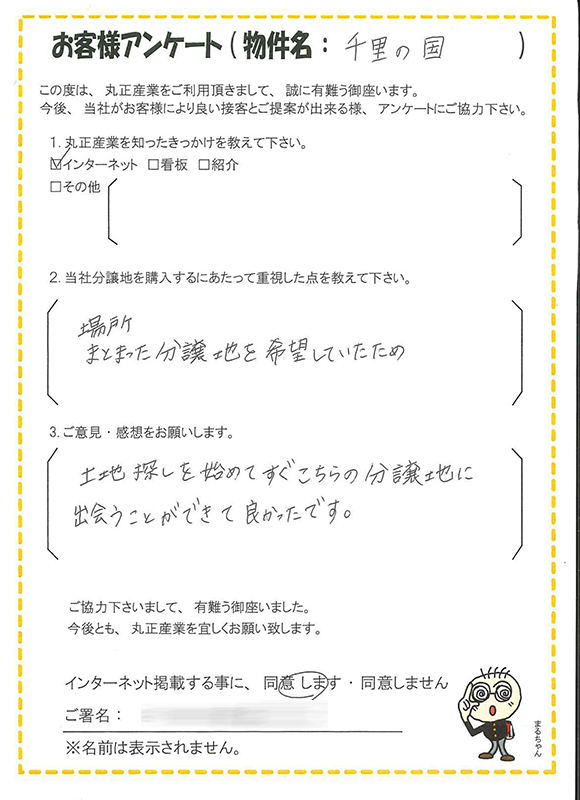 お客様アンケート(物件名：千里の国)
この度は、丸正産業をご利用頂きまして、誠に有難う御座います。
今後、当社がお客様により良い接客とご提案が出来る様、アンケートにご協力下さい。
1. 丸正産業を知ったきっかけを教えて下さい。
☑インターネット □看板 □紹介
□その他
2. 当社分譲地を購入するにあたって重視した点を教えて下さい。
場所
まとまった分譲地を希望していたため
3. ご意見・感想をお願いします。
土地探しを始めてすぐこちらの分譲地に
出会うことができて良かったです。
ご協力下さいまして、有難う御座いました。
今後とも、丸正産業を宜しくお願い致します。
インターネット掲載する事に、同意します・同意しません
ご署名：
※名前は表示されません。
まるちゃん